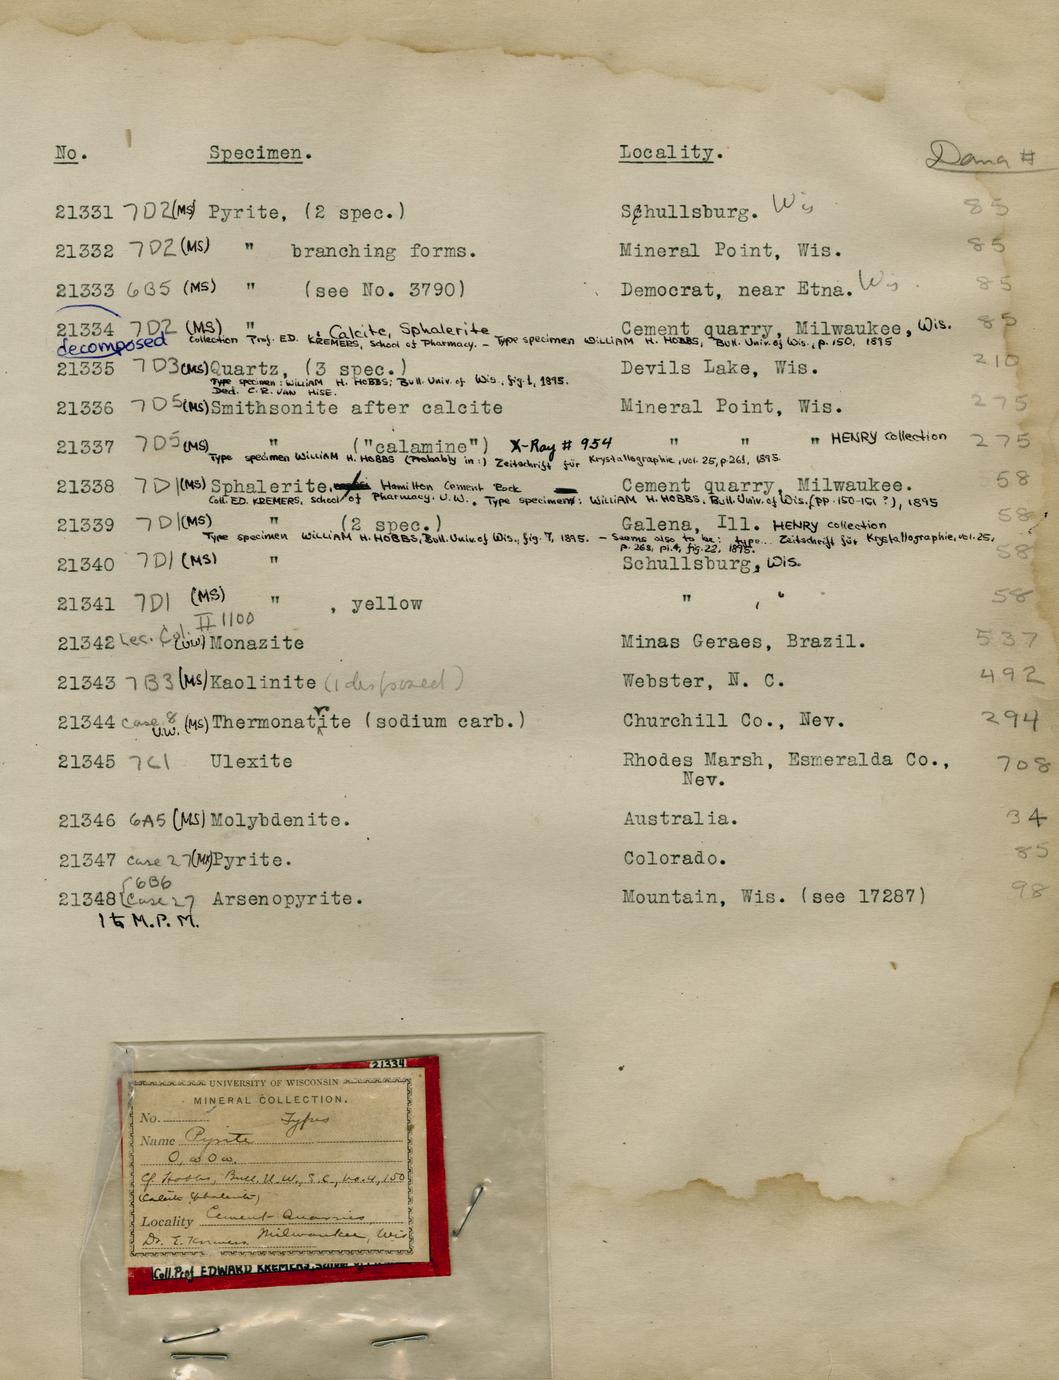 No. Specimen. Locality. Dana #
21331 7D2 (MS) Pyrite, (2 spec.) Schullsburg. Wis 85
21332 7D2 (MS) " branching forms. Mineral Point, Wis. 85
21333 6B5 (MS) " (see No. 3790) Democrat, near Etna. Wis. 85
21334 7D2 (MS) " , Calcite, Sphalerite Cement quarry, Milwaukee, Wis. 85
decomposed Collection Prof. ED. KREMERS, School of Pharmacy. — Type specimen WILLIAM H. HOBBS, Bull. Univ. of Wis., p. 150, 1895
21335 7D3 (MS) Quartz, (3 spec.) Devils Lake, Wis. 210
Type specimen: WILLIAM H. HOBBS; Bull. Univ. of Wis., fig. 1, 1895.
Ded. C. R. VAN HISE.
21336 7D5 (MS) Smithsonite after calcite Mineral Point, Wis. 275
21337 7D5 (MS) " ("calamine") X-Ray # 954 " " " HENRY collection 275
Type specimen WILLIAM H. HOBBS (Probably in:) Zeitschrift für Krystallographie, vol. 25, p. 261, 1895.
21338 7D1 (MS) Sphalerite, Hamilton Cement Rock Cement quarry, Milwaukee. 58
Coll. ED. KREMERS, School of Pharmacy. U.W. Type specimens: WILLIAM H. HOBBS, Bull. Univ. of Wis. (pp. 150-151 ?), 1895
21339 7D1 (MS) " (2 spec.) Galena, Ill. HENRY collection 58
Type specimen WILLIAM H. HOBBS, Bull. Univ. of Wis., fig. 7, 1895. — Seems also to be: type... Zeitschrift für Krystallographie, vol. 25,
p. 268, pl. 4, fig. 22, 1895.
21340 7D1 (MS) " Schullsburg, Wis. 58
21341 7D1 (MS) " , yellow " , " 58
II 1100
21342 Lec. Col. (UW) Monazite Minas Geraes, Brazil. 537
21343 7B3 (MS) Kaolinite (1 disposed) Webster, N. C. 492
21344 case 8 U.W. (MS) Thermonatrite (sodium carb.) Churchill Co., Nev. 294
21345 7C1 Ulexite Rhodes Marsh, Esmeralda Co., 708
Nev.
21346 6A5 (MS) Molybdenite. Australia. 34
21347 case 27 (MS) Pyrite. Colorado. 85
6B6
21348 Case 27 Arsenopyrite. Mountain, Wis. (see 17287) 98
1 to M.P.M.
21334
UNIVERSITY OF WISCONSIN
MINERAL COLLECTION.
No. Types
Name Pyrite
O, ∞O∞.
Cf Hobbs, Bull. U. W., S. C., No. 4, 150
(Calcite Sphalerite)
Locality Cement Quarries
Dr. E. Kremers Milwaukee, Wis
Coll. Prof EDWARD KREMERS, School of